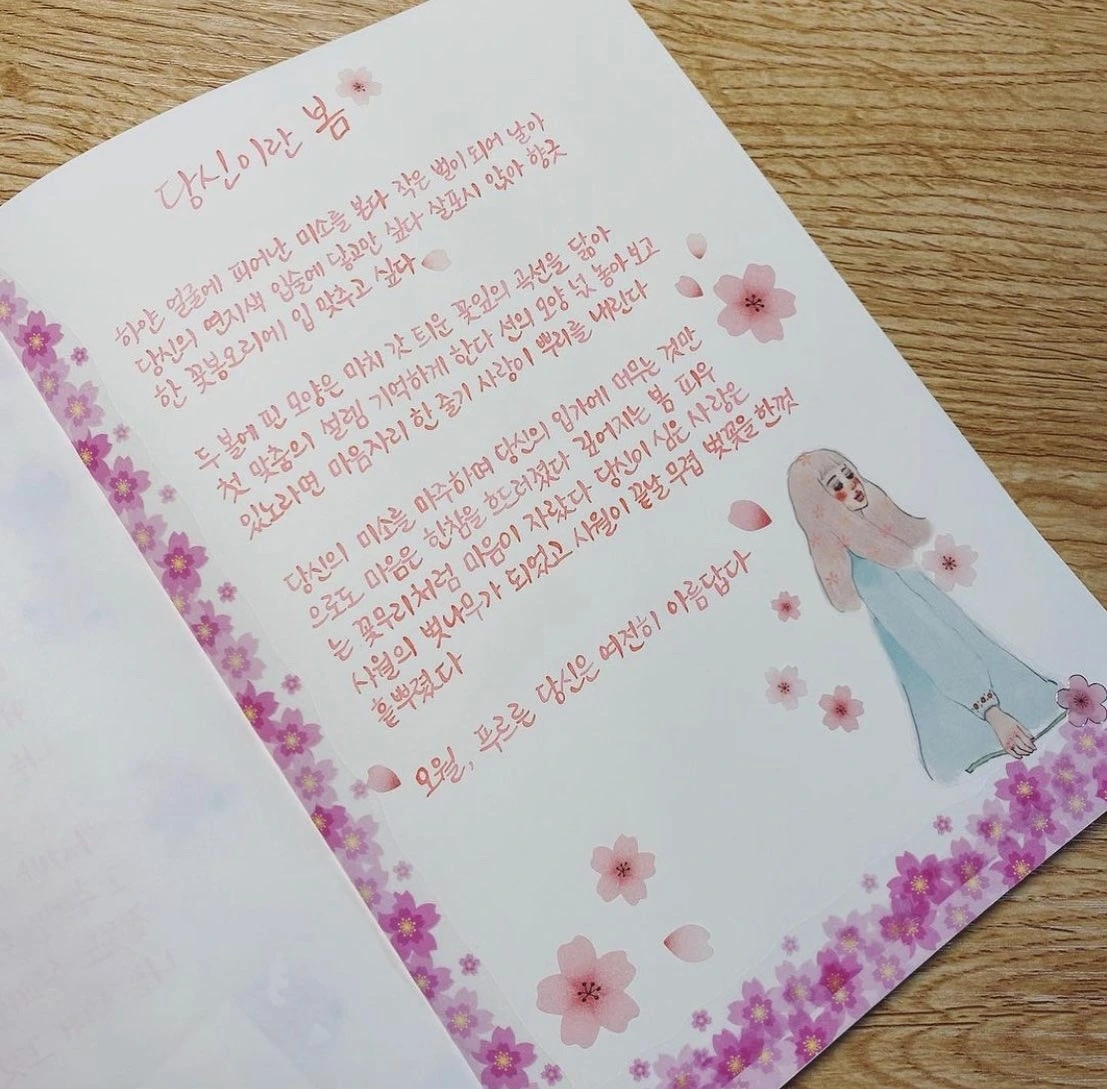 당신이란 봄
하얀 얼굴에 피어난 미소를 본다 작은 벌이 되어 날아
당신의 연지색 입술에 닿고만 싶다 살포시 앉아 향긋
한 꽃봉오리에 입 맞추고 싶다
두 볼에 핀 모양은 마치 갓 틔운 꽃잎의 곡선을 닮아
첫 맞춤의 설렘 기억하게 한다 선의 모양 넋 놓아 보고
있노라면 마음자리 한 줄기 사랑이 뿌리를 내린다
당신의 미소를 마주하며 당신의 입가에 머무는 것만
으로도 마음은 한참을 흐드러졌다 깊어지는 봄 피우
는 꽃무리처럼 마음이 자랐다 당신이 심은 사랑은
사월의 벚나무가 되었고 사월이 끝날 무렵 벚꽃을 한껏
흩뿌렸다
오월, 푸르른 당신은 여전히 아름답다